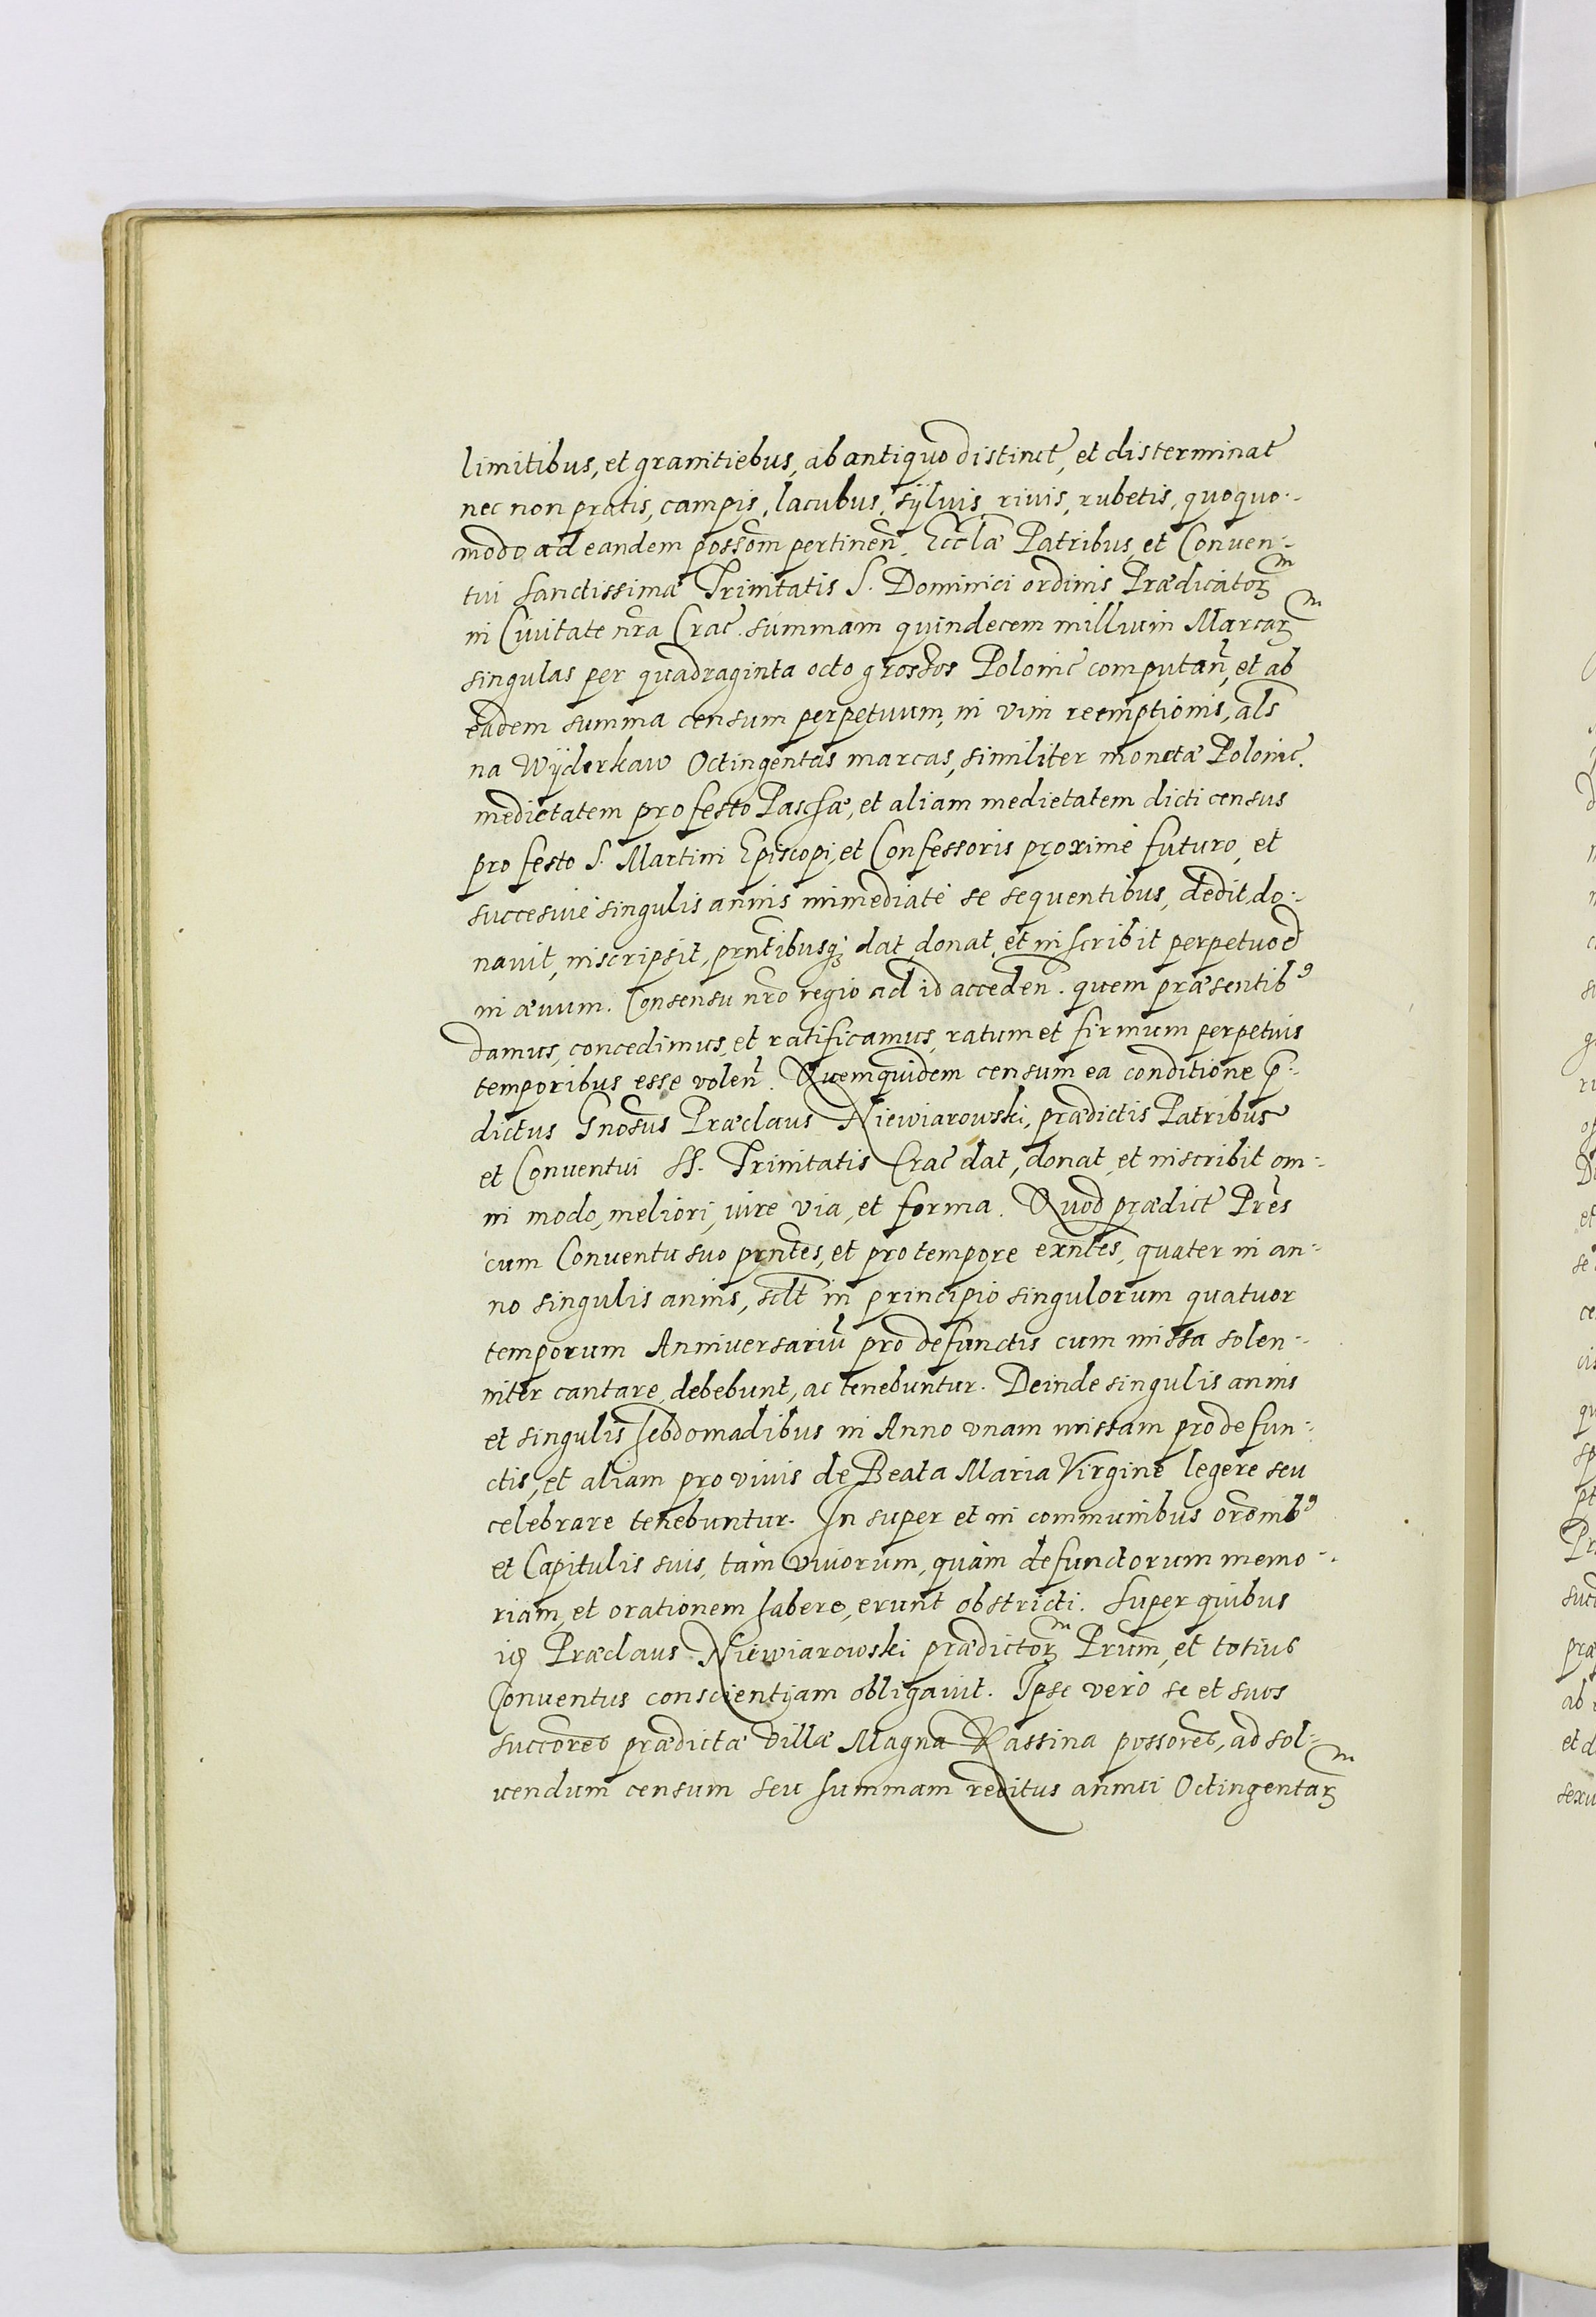 limitibus, et granitiebus, ab antiquo distinct, et disterminat
nec non pratis, campis, lacubus, sÿluis, rivis, rubetis, quoquo-
modo ad eandem possom̄ pertinen̄. Eccl̄æ Patribus, et Conuen-
tui Sanctissimæ Trinitatis S. Dominici ordinis Prædicatorꝝ
in Ciuitate nr̄a Crac. summam quindecem millium Marcarꝝ
singulas per quadraginta octo grossos Polonic computan̄, et ab
eadem summa censum perpetuum, in vim reemptionis, als̄
na Wÿderkaw Octingentas marcas, similiter monetæ Polonic.
medietatem pro festo Paschæ, et aliam medietatem dicti census
pro festo S. Martini Episcopi, et Confessoris proximè futuro, et
succesiuè singulis annis immediatè se sequentibus, dedit, do-
nauit, inscripsit, prn̄tibusqꝫ dat, donat, et inscribit perpetuo et
in æuum. Consensu nr̄o regio ad id acceden̄. quem præsentibꝰ
damus, concedimus, et ratificamus, ratum et firmum perpetuis
temporibus esse volen̄. Quemquidem censum ea conditione p̄-
dictus Gn̄osus Præclaus Niewiarowski, prædictis Patribus
et Conuentui SS. Trinitatis Crac dat, donat, et inscribit om-
ni modo, meliori, iure via, et forma. Quod prædict Pr̄es
cum Conuentu suo prn̄tes, et pro tempore exn̄tes, quater in an-
no singulis annis, sclt̄ in principio singulorum quatuor
temporum Anniuersariū pro defunctis cum missa solen-
niter cantare, debebunt, ac tenebuntur. Deinde singulis annis
et singulis hebdomadibus in Anno vnam missam pro defun-
ctis, et aliam pro viuis de Beata Maria Virgine legere seu
celebrare tenebuntur. In super et in communibus oron̄ibꝰ
et Capitulis suis, tàm viuorum, quàm defunctorum memo-
riam, et orationem habere, erunt obstricti. Super quibus
iꝭ Præclaus Niewiarowski prædictorꝝ Prum̄, et totius
Conuentus conscientÿam obligauit. Ipse verò se et suos
succores̄ prædictæ Villæ Magna Kassina possores̄, ad sol-
uendum censum seu summam reditus annui Octingentarꝝ